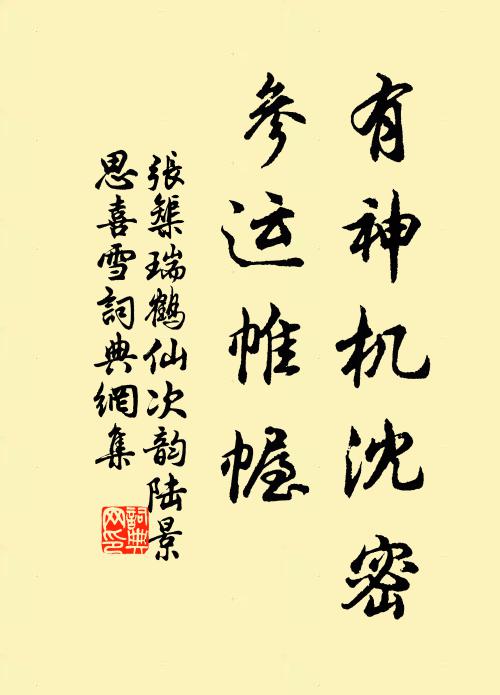 有神机沈密
參运帷幄
張榘瑞鶴仙次韵陆景
思喜雪詞典網集
詞典网印